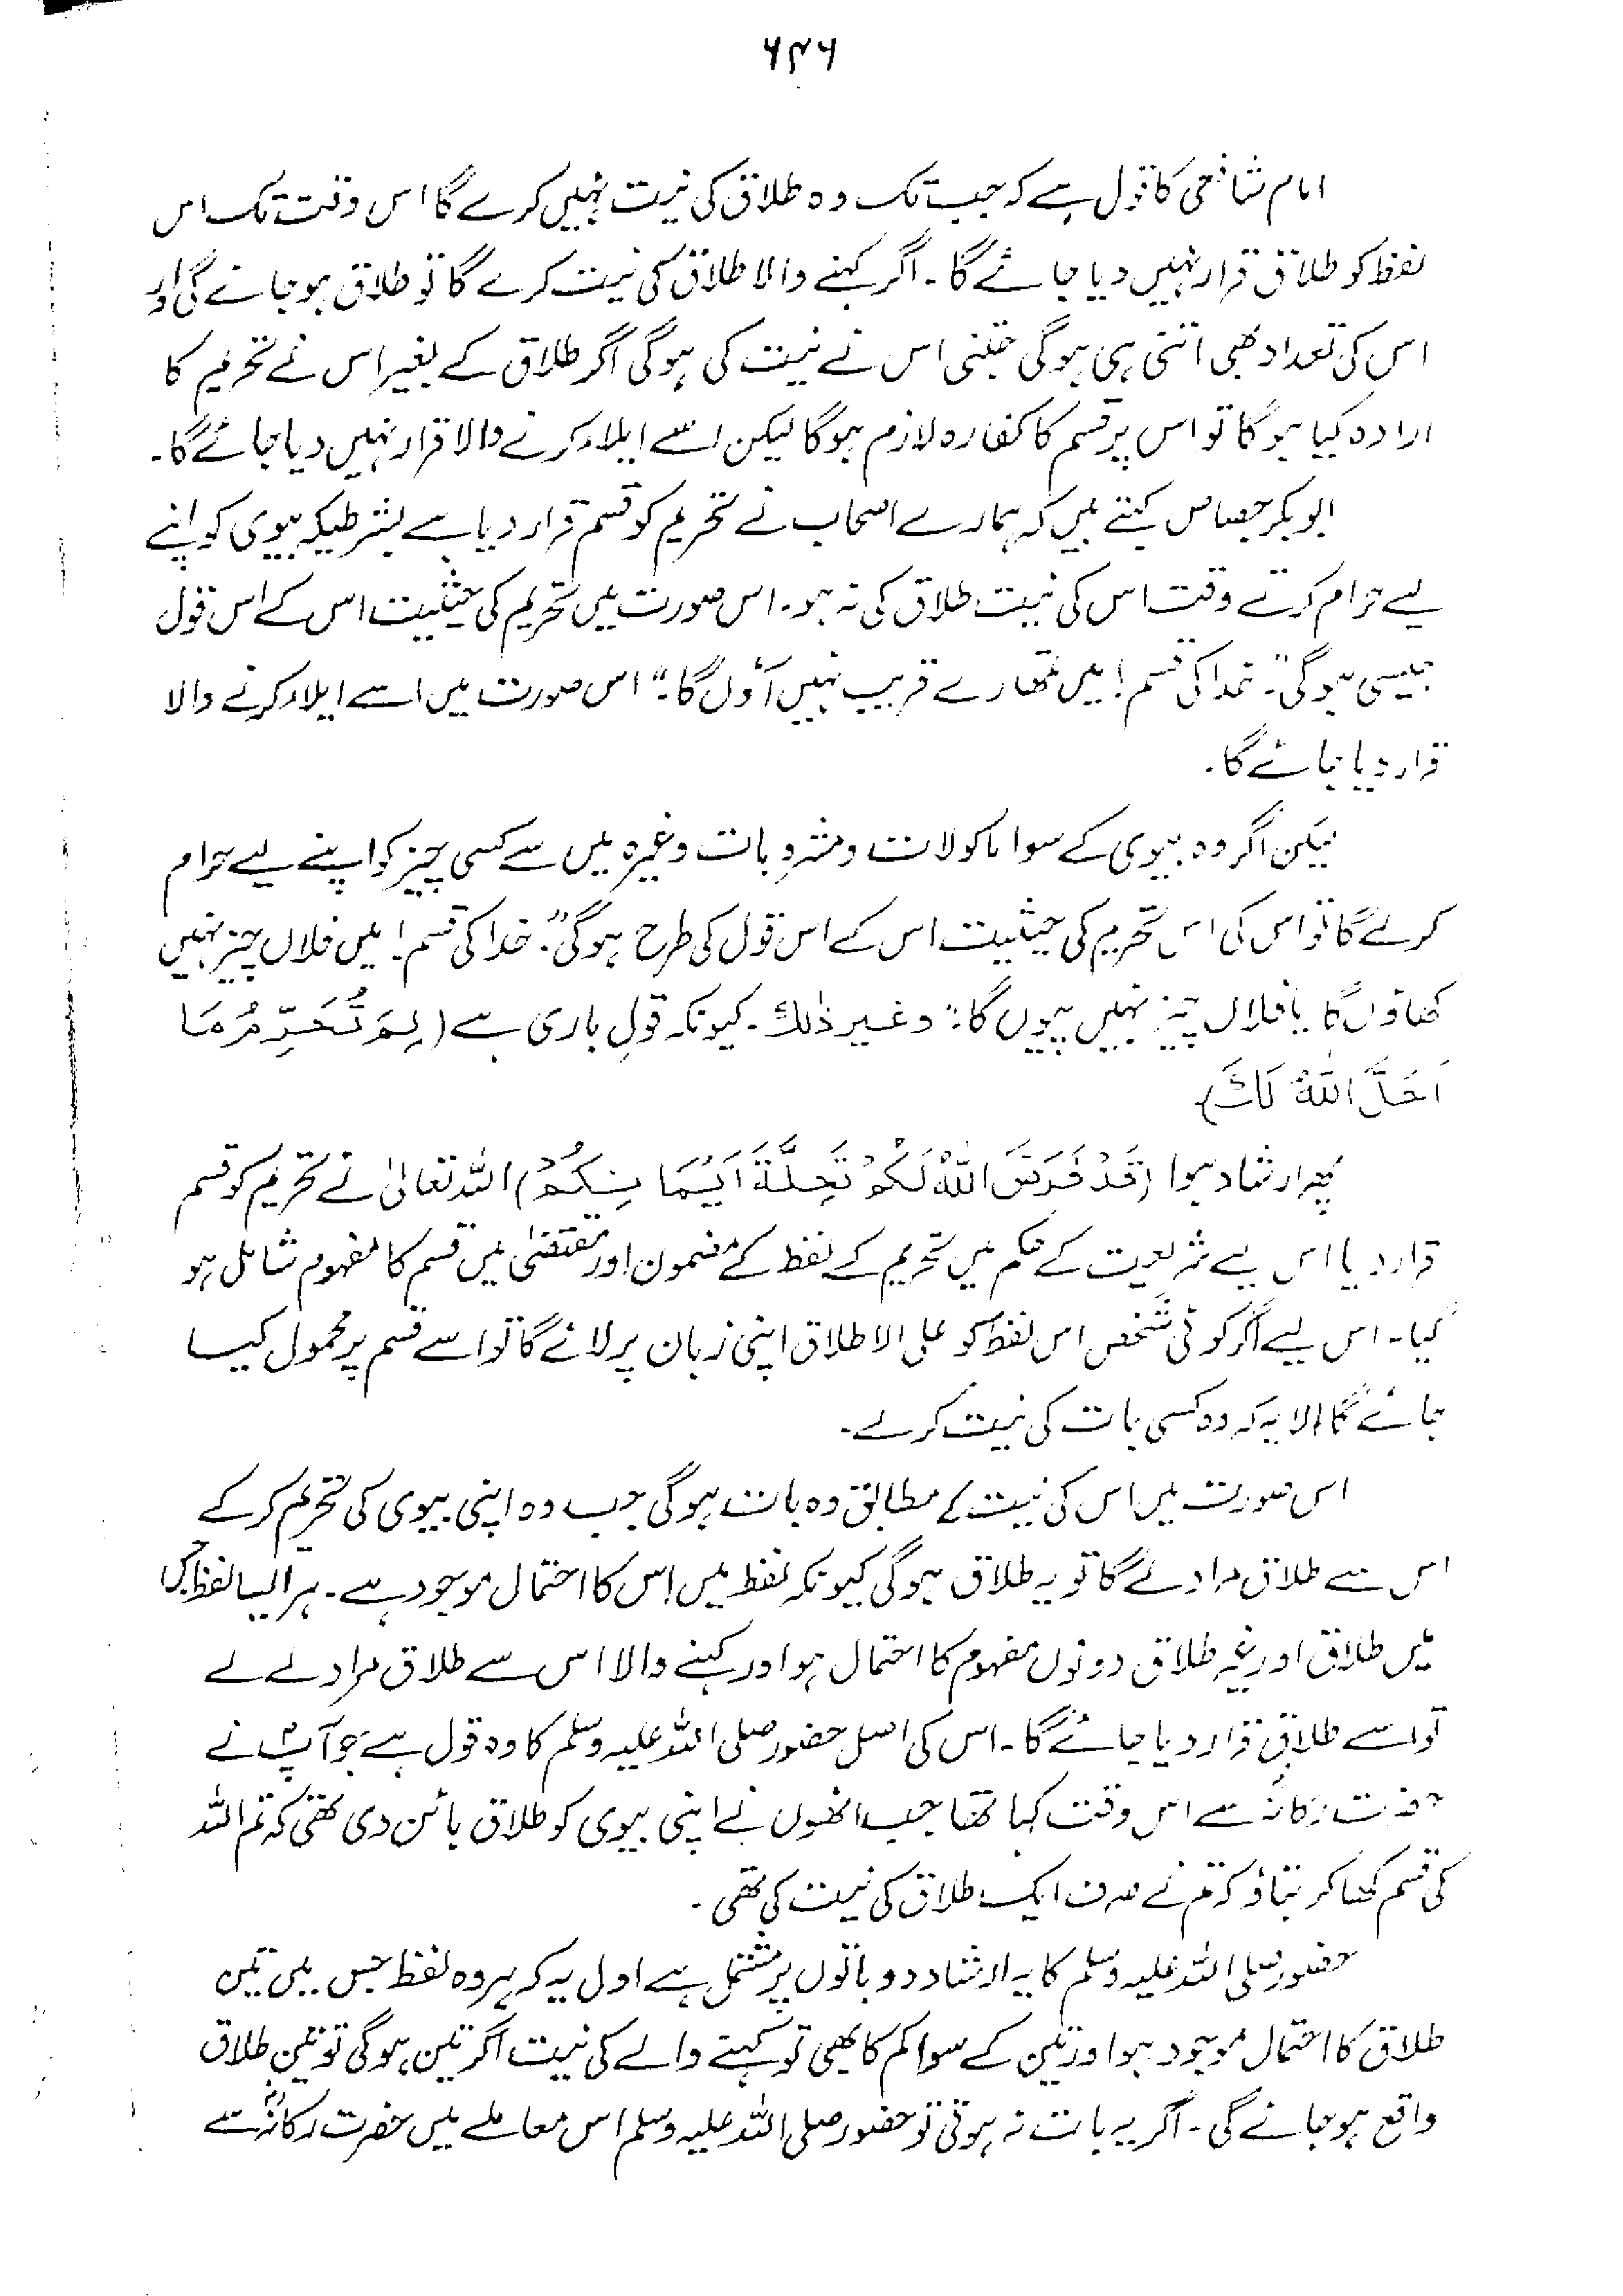 ۶۴۶
امام شافعی کا قول ہے کہ جب تک وہ طلاق کی نیت نہیں کرے گا اس وقت تک اس
لفظ کو طلاق قرار نہیں دیا جائے گا۔ اگر کہنے والا طلاق کی نیت کرے گا تو طلاق ہو جائے گی اور
اس کی تعداد بھی اتنی ہی ہوگی جتنی اس نے نیت کی ہوگی اگر طلاق کے بغیر اس نے تحریم کا
ارادہ کیا ہوگا تو اس پر قسم کا کفارہ لازم ہوگا لیکن اسے ایلاء کرنے والا قرار نہیں دیا جائے گا۔
ابو بکر جصاص کہتے ہیں کہ ہمارے اصحاب نے تحریم کو قسم قرار دیا ہے بشرطیکہ بیوی کو اپنے
لیے حرام کرتے وقت اس کی نیت طلاق کی نہ ہو۔ اس صورت میں تحریم کی حیثیت اس کے اس قول
جیسی ہوگی "۔ خدا کی قسم! میں تمھارے قریب نہیں آؤں گا۔" اس صورت میں اسے ایلاء کرنے والا
قرار دیا جائے گا۔
لیکن اگر وہ بیوی کے سوا ماکولات و مشروبات وغیرہ میں سے کسی چیز کو اپنے لیے حرام
کرلے گا تو اس کی اس تحریم کی حیثیت اس کے اس قول کی طرح ہوگی "۔ خدا کی قسم! میں فلاں چیز نہیں
کھاؤں گا یا فلاں چیز نہیں پیوں گا" وغیر ذلک۔ کیونکہ قولِ باری ہے (لِمَ تُحَرِّمُ مَا
اَحَلَّ اللّٰہُ لَكَ)
پھر ارشاد ہوا (قَدْ فَرَضَ اللّٰہُ لَكُمْ تَحِلَّةَ اَيْمَانِكُمْ) اللہ تعالیٰ نے تحریم کو قسم
قرار دیا اس لیے شریعت کے حکم میں تحریم کے لفظ کے مضمون اور مقتضیٰ میں قسم کا مفہوم شامل ہو
گیا۔ اس لیے اگر کوئی شخص اس لفظ کو علی الاطلاق اپنی زبان پر لائے گا تو اسے قسم پر محمول کیا
جائے گا الا یہ کہ وہ کسی بات کی نیت کرلے۔
اس صورت میں اس کی نیت کے مطابق وہ بات ہوگی جب وہ اپنی بیوی کی تحریم کرکے
اس سے طلاق مراد لے گا تو یہ طلاق ہوگی کیونکہ لفظ میں اس کا احتمال موجود ہے۔ ہر ایسا لفظ جس
میں طلاق اور غیر طلاق دونوں مفہوم کا احتمال ہو اور کہنے والا اس سے طلاق مراد لے لے
تو اسے طلاق قرار دیا جائے گا۔ اس کی اصل حضور صلی اللہ علیہ وسلم کا وہ قول ہے جو آپؐ نے
حضرت رکانہؓ سے اس وقت کہا تھا جب انھوں نے اپنی بیوی کو طلاق بائن دی تھی کہ تم اللہ
کی قسم کھا کر بتاؤ کہ تم نے صرف ایک طلاق کی نیت کی تھی۔
حضور صلی اللہ علیہ وسلم کا یہ ارشاد دو باتوں پر مشتمل ہے اول یہ کہ ہر وہ لفظ جس میں تین
طلاق کا احتمال موجود ہو اور تین کے سوا کم کا بھی تو کہنے والے کی نیت اگر تین ہوگی تو تین طلاق
واقع ہو جائے گی۔ اگر یہ بات نہ ہوتی تو حضور صلی اللہ علیہ وسلم اس معاملے میں حضرت رکانہؓ سے